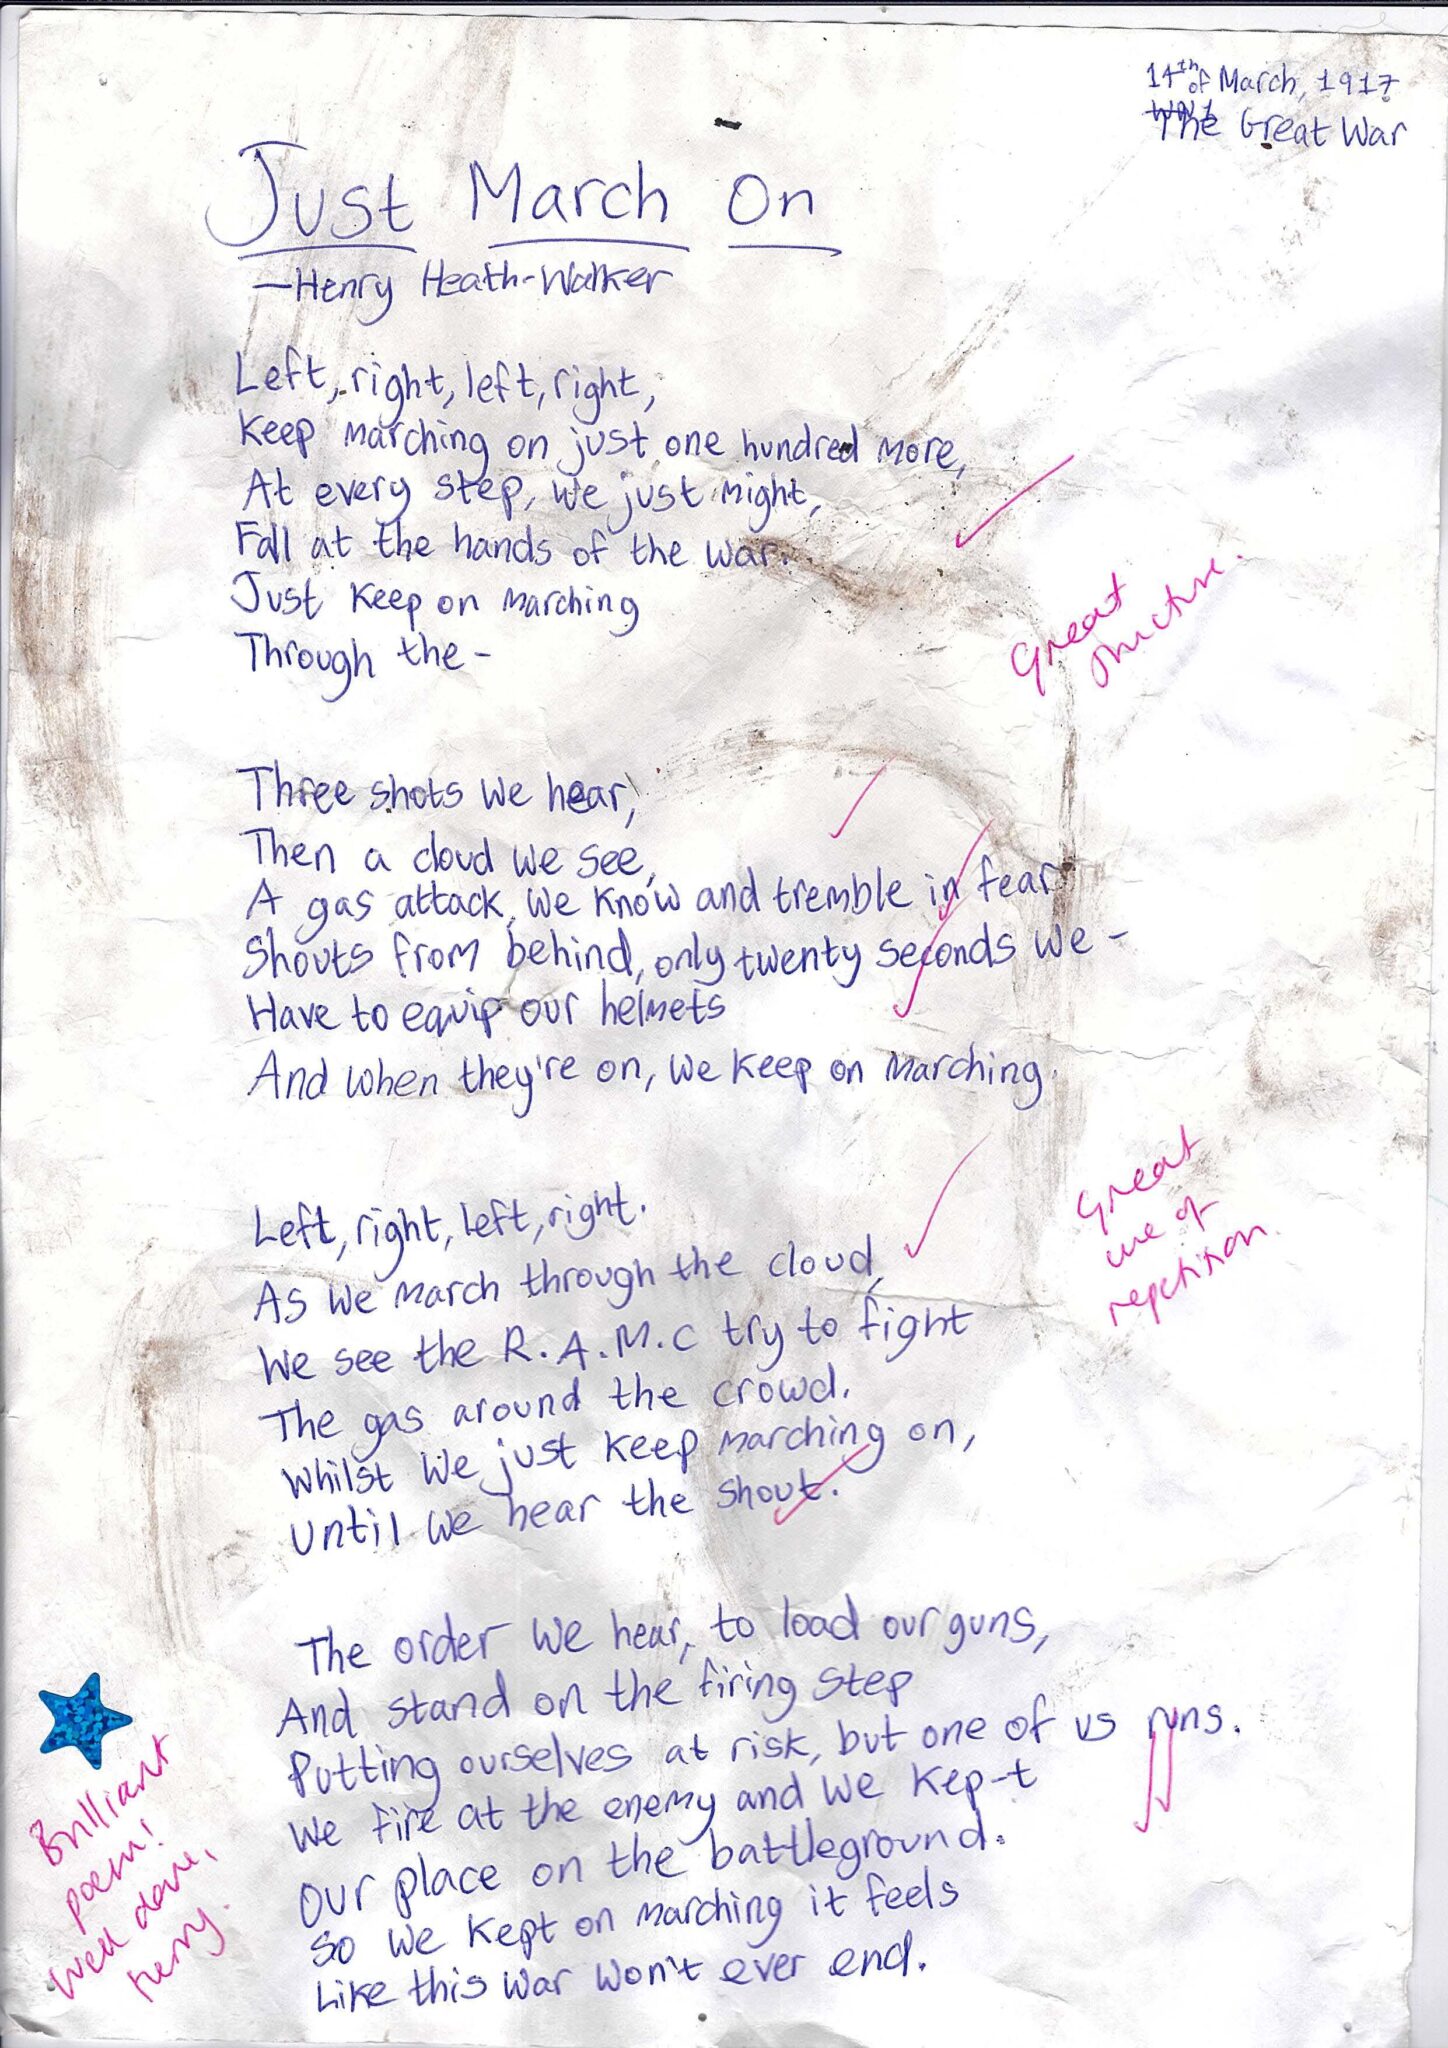 14th of March, 1917
WW1
The Great War
Just March On
—Henry Heath-Walker
Left, right, left, right,
Keep marching on just one hundred more,
At every step, we just might,
Fall at the hands of the war.
Just keep on marching
Through the-
Great structure.
Three shots we hear,
Then a cloud we see,
A gas attack, we know and tremble in fear
Shouts from behind, only twenty seconds we -
Have to equip our helmets
And when they're on, we keep on marching.
Great
use of
repetition.
Left, right, left, right.
As we march through the cloud,
We see the R.A.M.C try to fight
The gas around the crowd.
Whilst we just keep marching on,
Until we hear the shout.
The order we hear, to load our guns,
And stand on the firing step
Putting ourselves at risk, but one of us runs.
We fire at the enemy and we kep-t
Our place on the battleground.
So we kept on marching it feels
Like this war won't ever end.
Brilliant
poem!
Well done,
Henry.